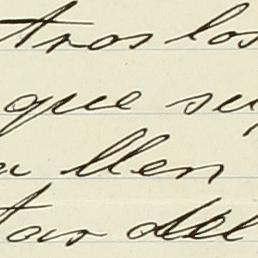 tros los
que su
a llen
tar del